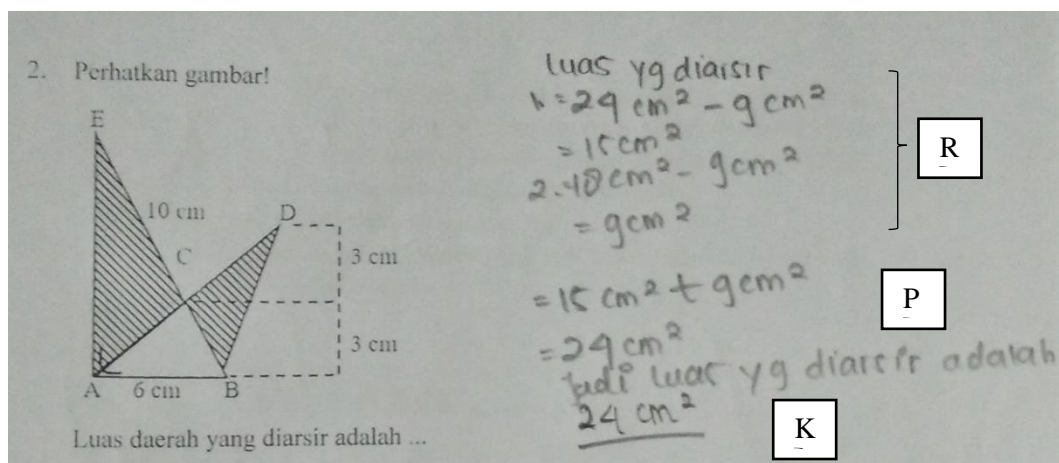 2. Perhatkan gambar!
E
10 cm
D
C
3 cm
3 cm
A 6 cm B
Luas daerah yang diarsir adalah ...
luas yg diarsir
1 = 24 cm² - 9 cm²
= 15 cm²
2. 18 cm² - 9 cm²
= 9 cm²
R
= 15 cm² + 9 cm²
P
= 24 cm²
Jadi luas yg diarsir adalah
24 cm²
K